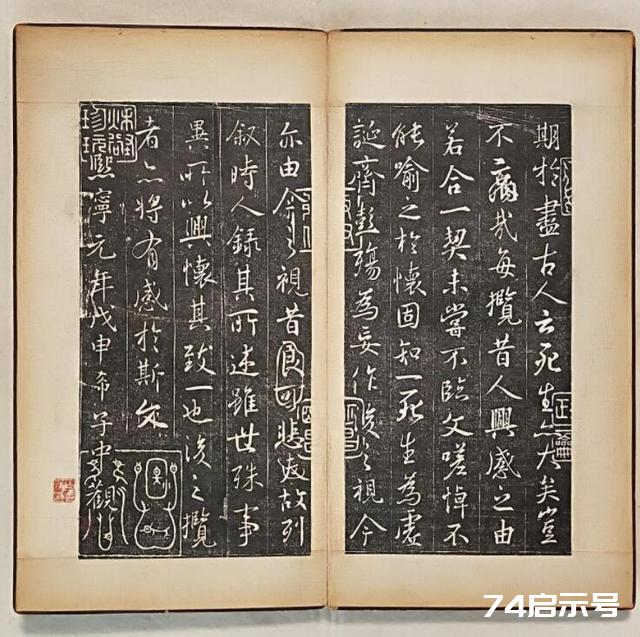 期於盡古人云死生亦大矣豈
不痛哉每攬昔人興感之由
若合一契未嘗不臨文嗟悼不
能喻之於懷固知一死生為虛
誕齊彭殤為妄作後之視今
亦由今之視昔悲夫故列
敘時人錄其所述雖世殊事
異所以興懷其致一也後之攬
者亦將有感於斯文
熙寧元年戊申希子中觀
74启示号